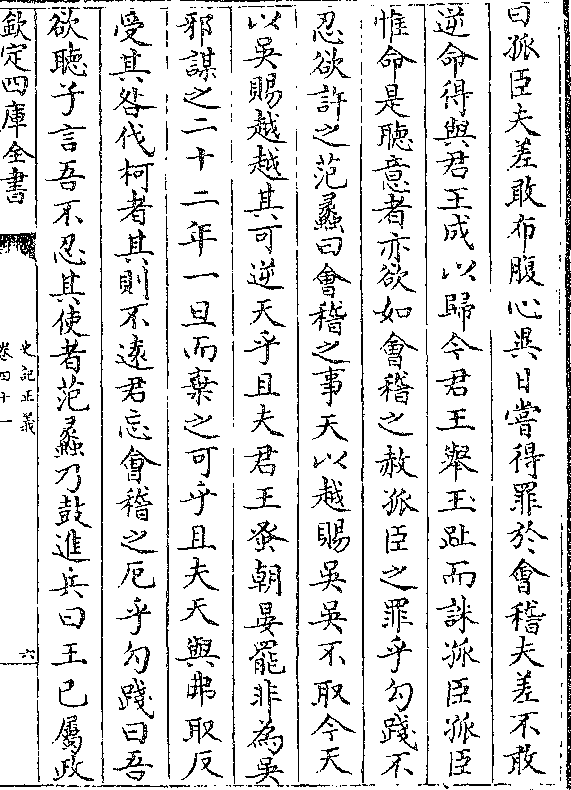 曰孤臣夫差敢布腹心異日嘗得罪於會稽夫差不敢
逆命得與君王成以歸今君王舉玉趾而誅孤臣孤臣
惟命是聽意者亦欲如會稽之赦孤臣之罪乎勾踐不
忍欲許之范蠡曰會稽之事天以越賜吳吳不取今天
以吳賜越越其可逆天乎且夫君王蚤朝晏罷非為吳
邪謀之二十二年一旦而棄之可乎且夫天與弗取反
受其咎伐柯者其則不遠君忘會稽之厄乎勾踐曰吾
欲聽子言吾不忍其使者范蠡乃鼓進兵曰王已屬政
欽定四庫全書
史記正義
卷四十一
六